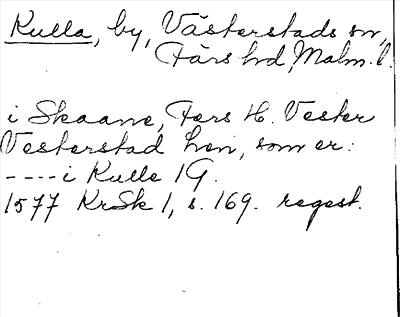 Kulla, by, Västerstads sn,
Färs hd, Malm. l.
i Skaane, Færs H. Vester
Vesterstad Len, som er:
---- i Kulle 1 G.
1577 KrSk 1, s. 169. regest.